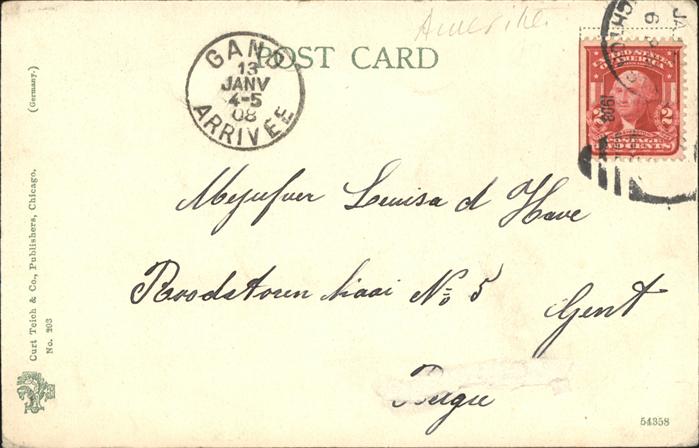 Amerike.
POST CARD
GAND
13
JANV
4-5
08
ARRIVEE
JA
1908
UNITED STATES
OF AMERICA
2 2
POSTAGE
TWO CENTS
Mejufver Louisa d Have
Roodstoren kaai No 5
Gent
Belgie
Curt Teich & Co., Publishers, Chicago.
No. 203
(Germany.)
54358